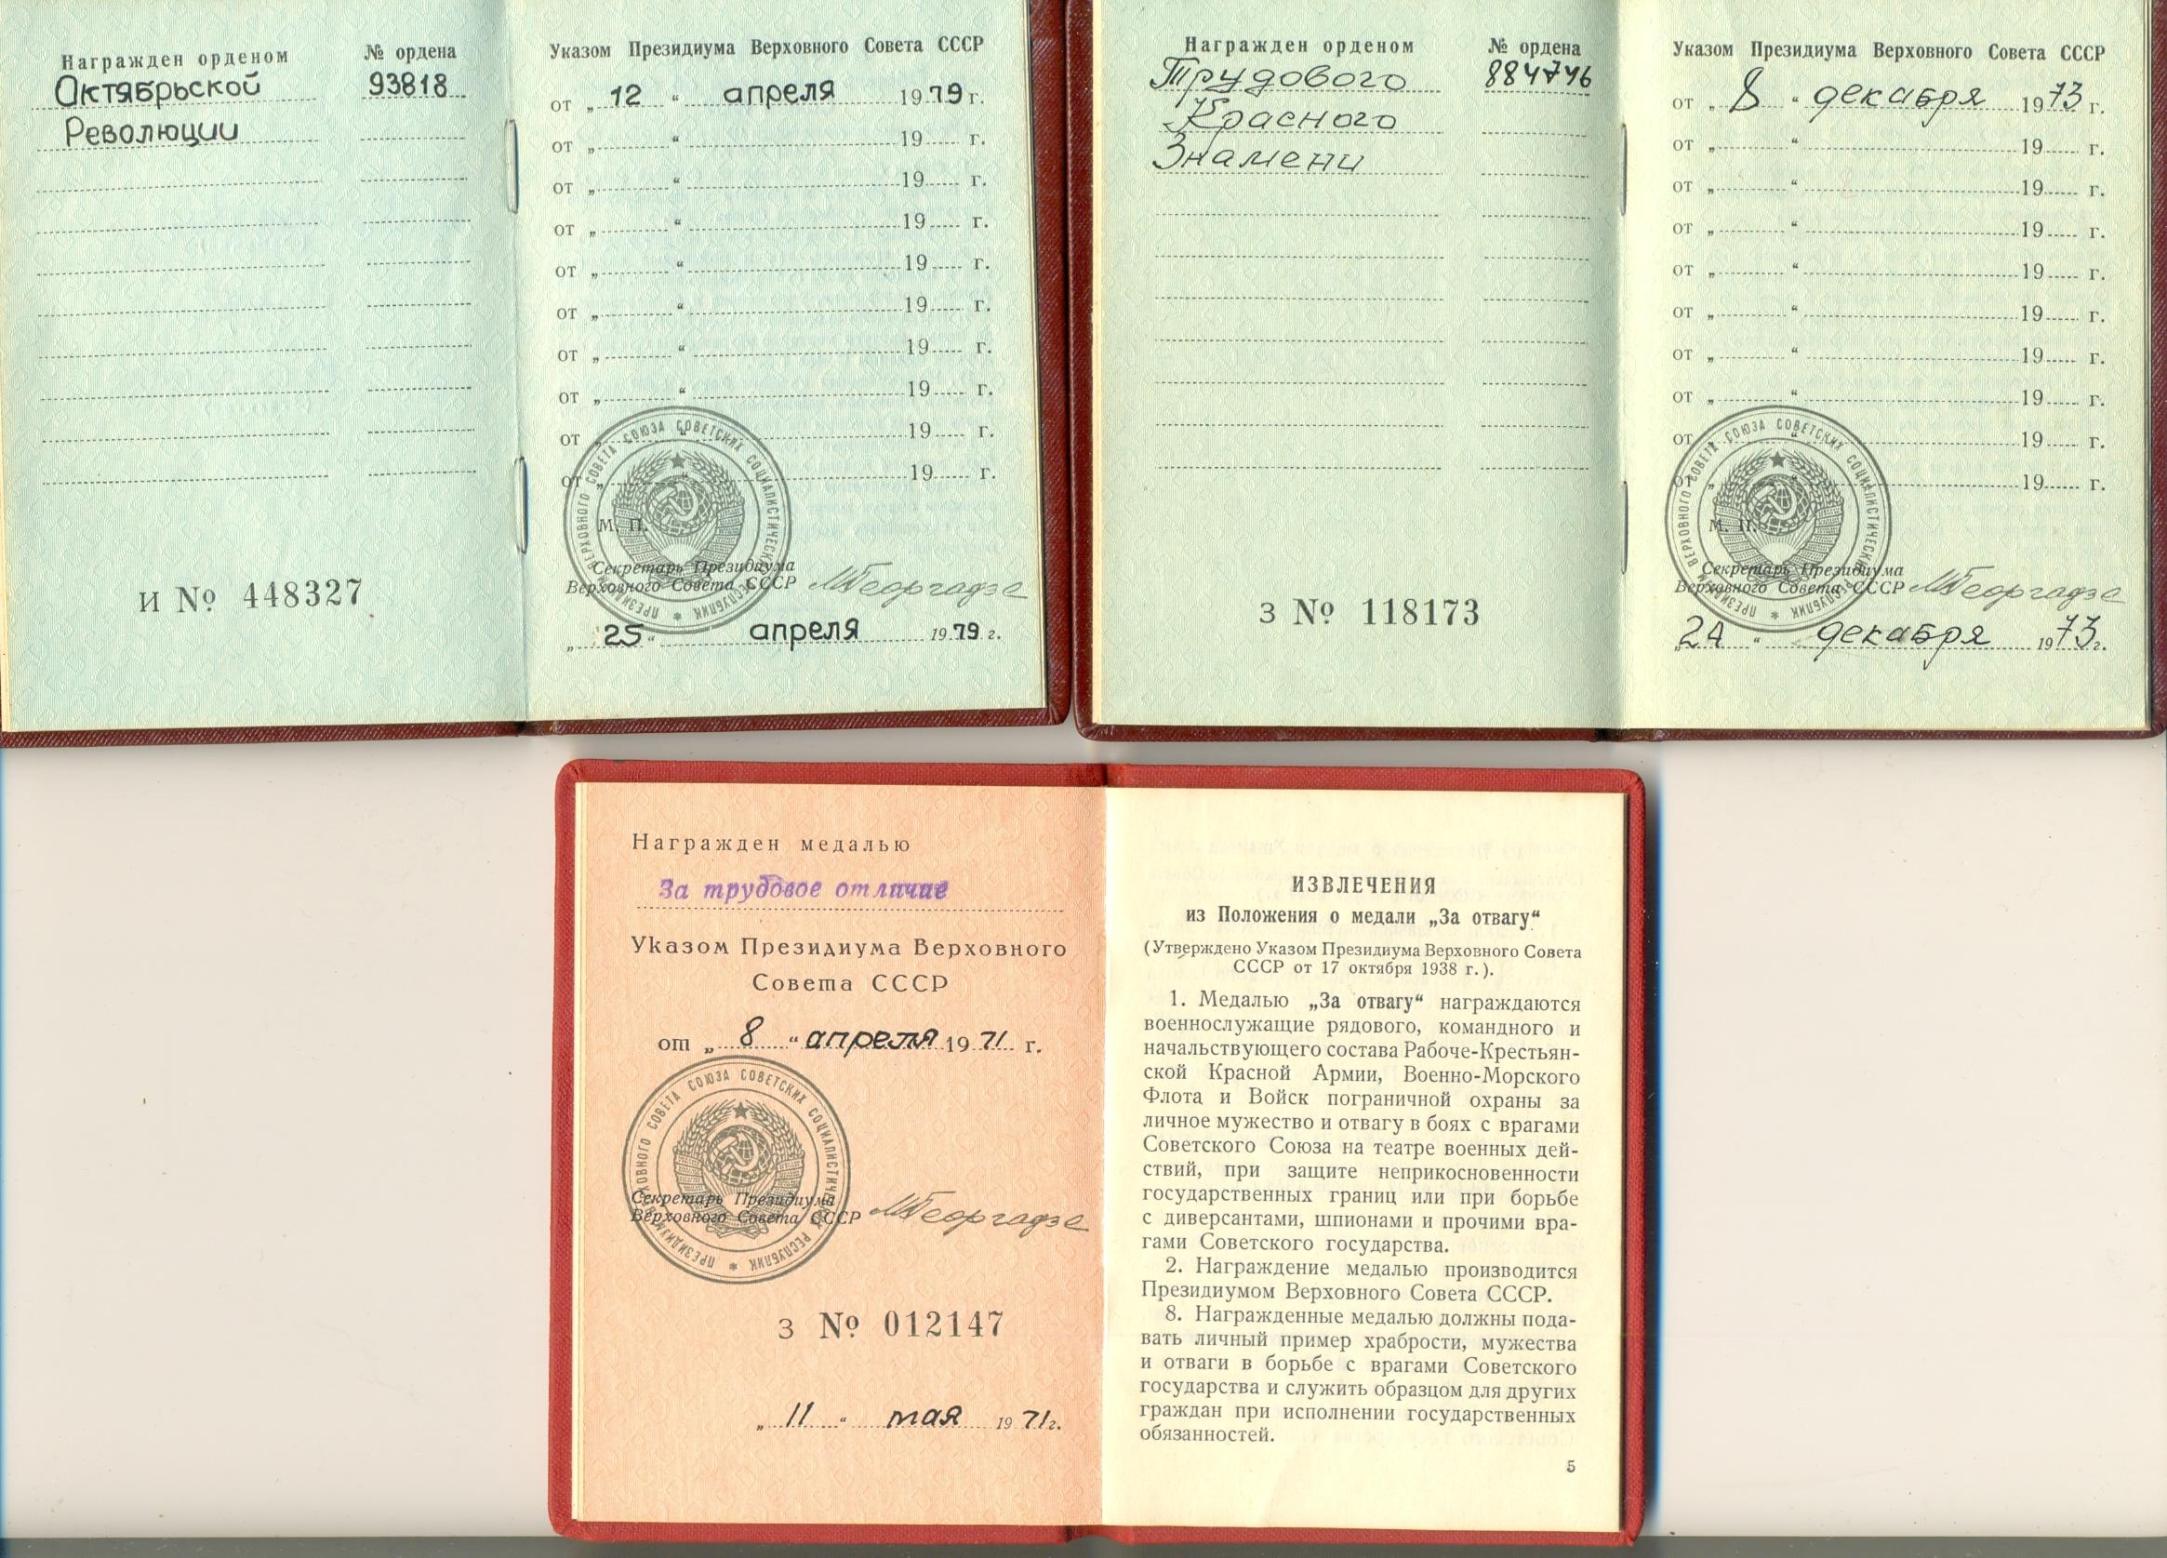 Награжден орденом № ордена
Октябрьской 93818
Революции
И № 448327
Указом Президиума Верховного Совета СССР
от „ 12 “ апреля 1979 г.
от „ “ 19 г.
от „ “ 19 г.
от „ “ 19 г.
от „ “ 19 г.
от „ “ 19 г.
от „ “ 19 г.
от „ “ 19 г.
от „ “ 19 г.
от „ “ 19 г.
ПРЕЗИДИУМ ВЕРХОВНОГО СОВЕТА СОЮЗА СОВЕТСКИХ СОЦИАЛИСТИЧЕСКИХ РЕСПУБЛИК
М. П.
Секретарь Президиума
Верховного Совета СССР МГеоргадзе
„ 25 “ апреля 1979 г.
Награжден орденом № ордена
Трудового 884746
Красного
Знамени
З № 118173
Указом Президиума Верховного Совета СССР
от „ 8 “ декабря 1973 г.
от „ “ 19 г.
от „ “ 19 г.
от „ “ 19 г.
от „ “ 19 г.
от „ “ 19 г.
от „ “ 19 г.
от „ “ 19 г.
от „ “ 19 г.
от „ “ 19 г.
ПРЕЗИДИУМ ВЕРХОВНОГО СОВЕТА СОЮЗА СОВЕТСКИХ СОЦИАЛИСТИЧЕСКИХ РЕСПУБЛИК
М. П.
Секретарь Президиума
Верховного Совета СССР МГеоргадзе
„ 24 “ декабря 1973 г.
Награжден медалью
За трудовое отличие
Указом Президиума Верховного
Совета СССР
от „ 8 “ апреля 1971 г.
ПРЕЗИДИУМ ВЕРХОВНОГО СОВЕТА СОЮЗА СОВЕТСКИХ СОЦИАЛИСТИЧЕСКИХ РЕСПУБЛИК
Секретарь Президиума
Верховного Совета СССР МГеоргадзе
З № 012147
„ 11 “ мая 1971 г.
ИЗВЛЕЧЕНИЯ
из Положения о медали „За отвагу“
(Утверждено Указом Президиума Верховного Совета
СССР от 17 октября 1938 г.).
1. Медалью „За отвагу“ награждаются
военнослужащие рядового, командного и
начальствующего состава Рабоче-Крестьян-
ской Красной Армии, Военно-Морского
Флота и Войск пограничной охраны за
личное мужество и отвагу в боях с врагами
Советского Союза на театре военных дей-
ствий, при защите неприкосновенности
государственных границ или при борьбе
с диверсантами, шпионами и прочими вра-
гами Советского государства.
2. Награждение медалью производится
Президиумом Верховного Совета СССР.
8. Награжденные медалью должны пода-
вать личный пример храбрости, мужества
и отваги в борьбе с врагами Советского
государства и служить образцом для других
граждан при исполнении государственных
обязанностей.
5